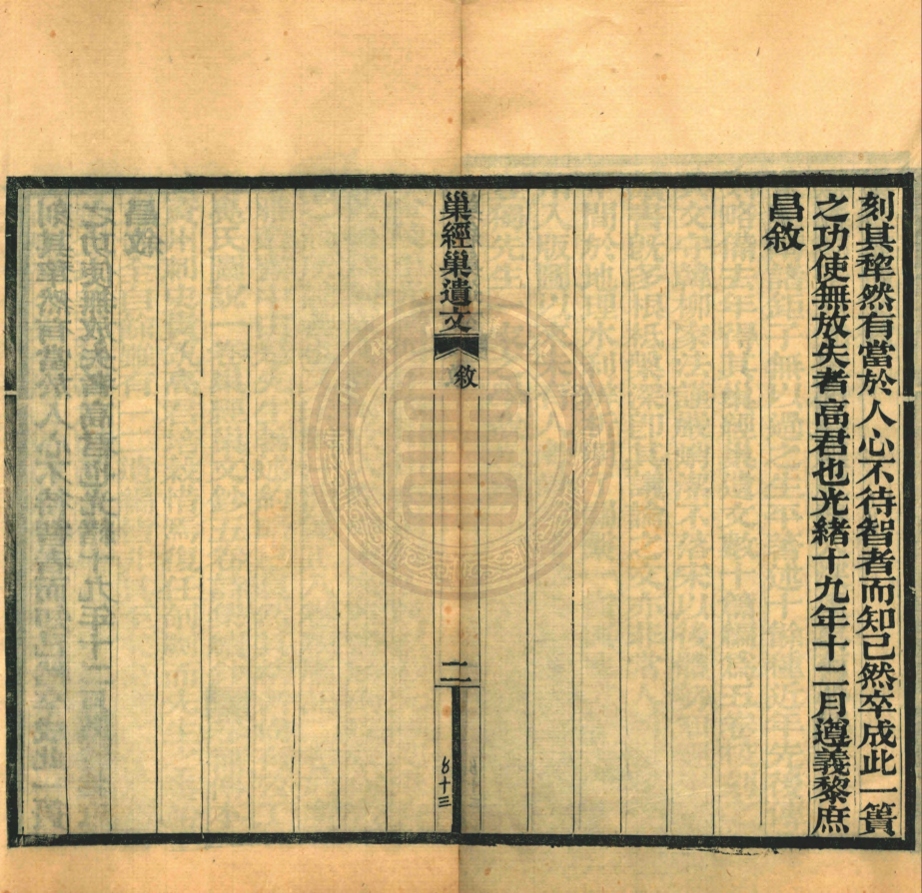 刻其犂然有當於人心不待智者而知已然卒成此一簣
之功使無放失者高君也光緒十九年十二月遵義黎庶
昌敘
巢經巢遺文
敘
二
十三